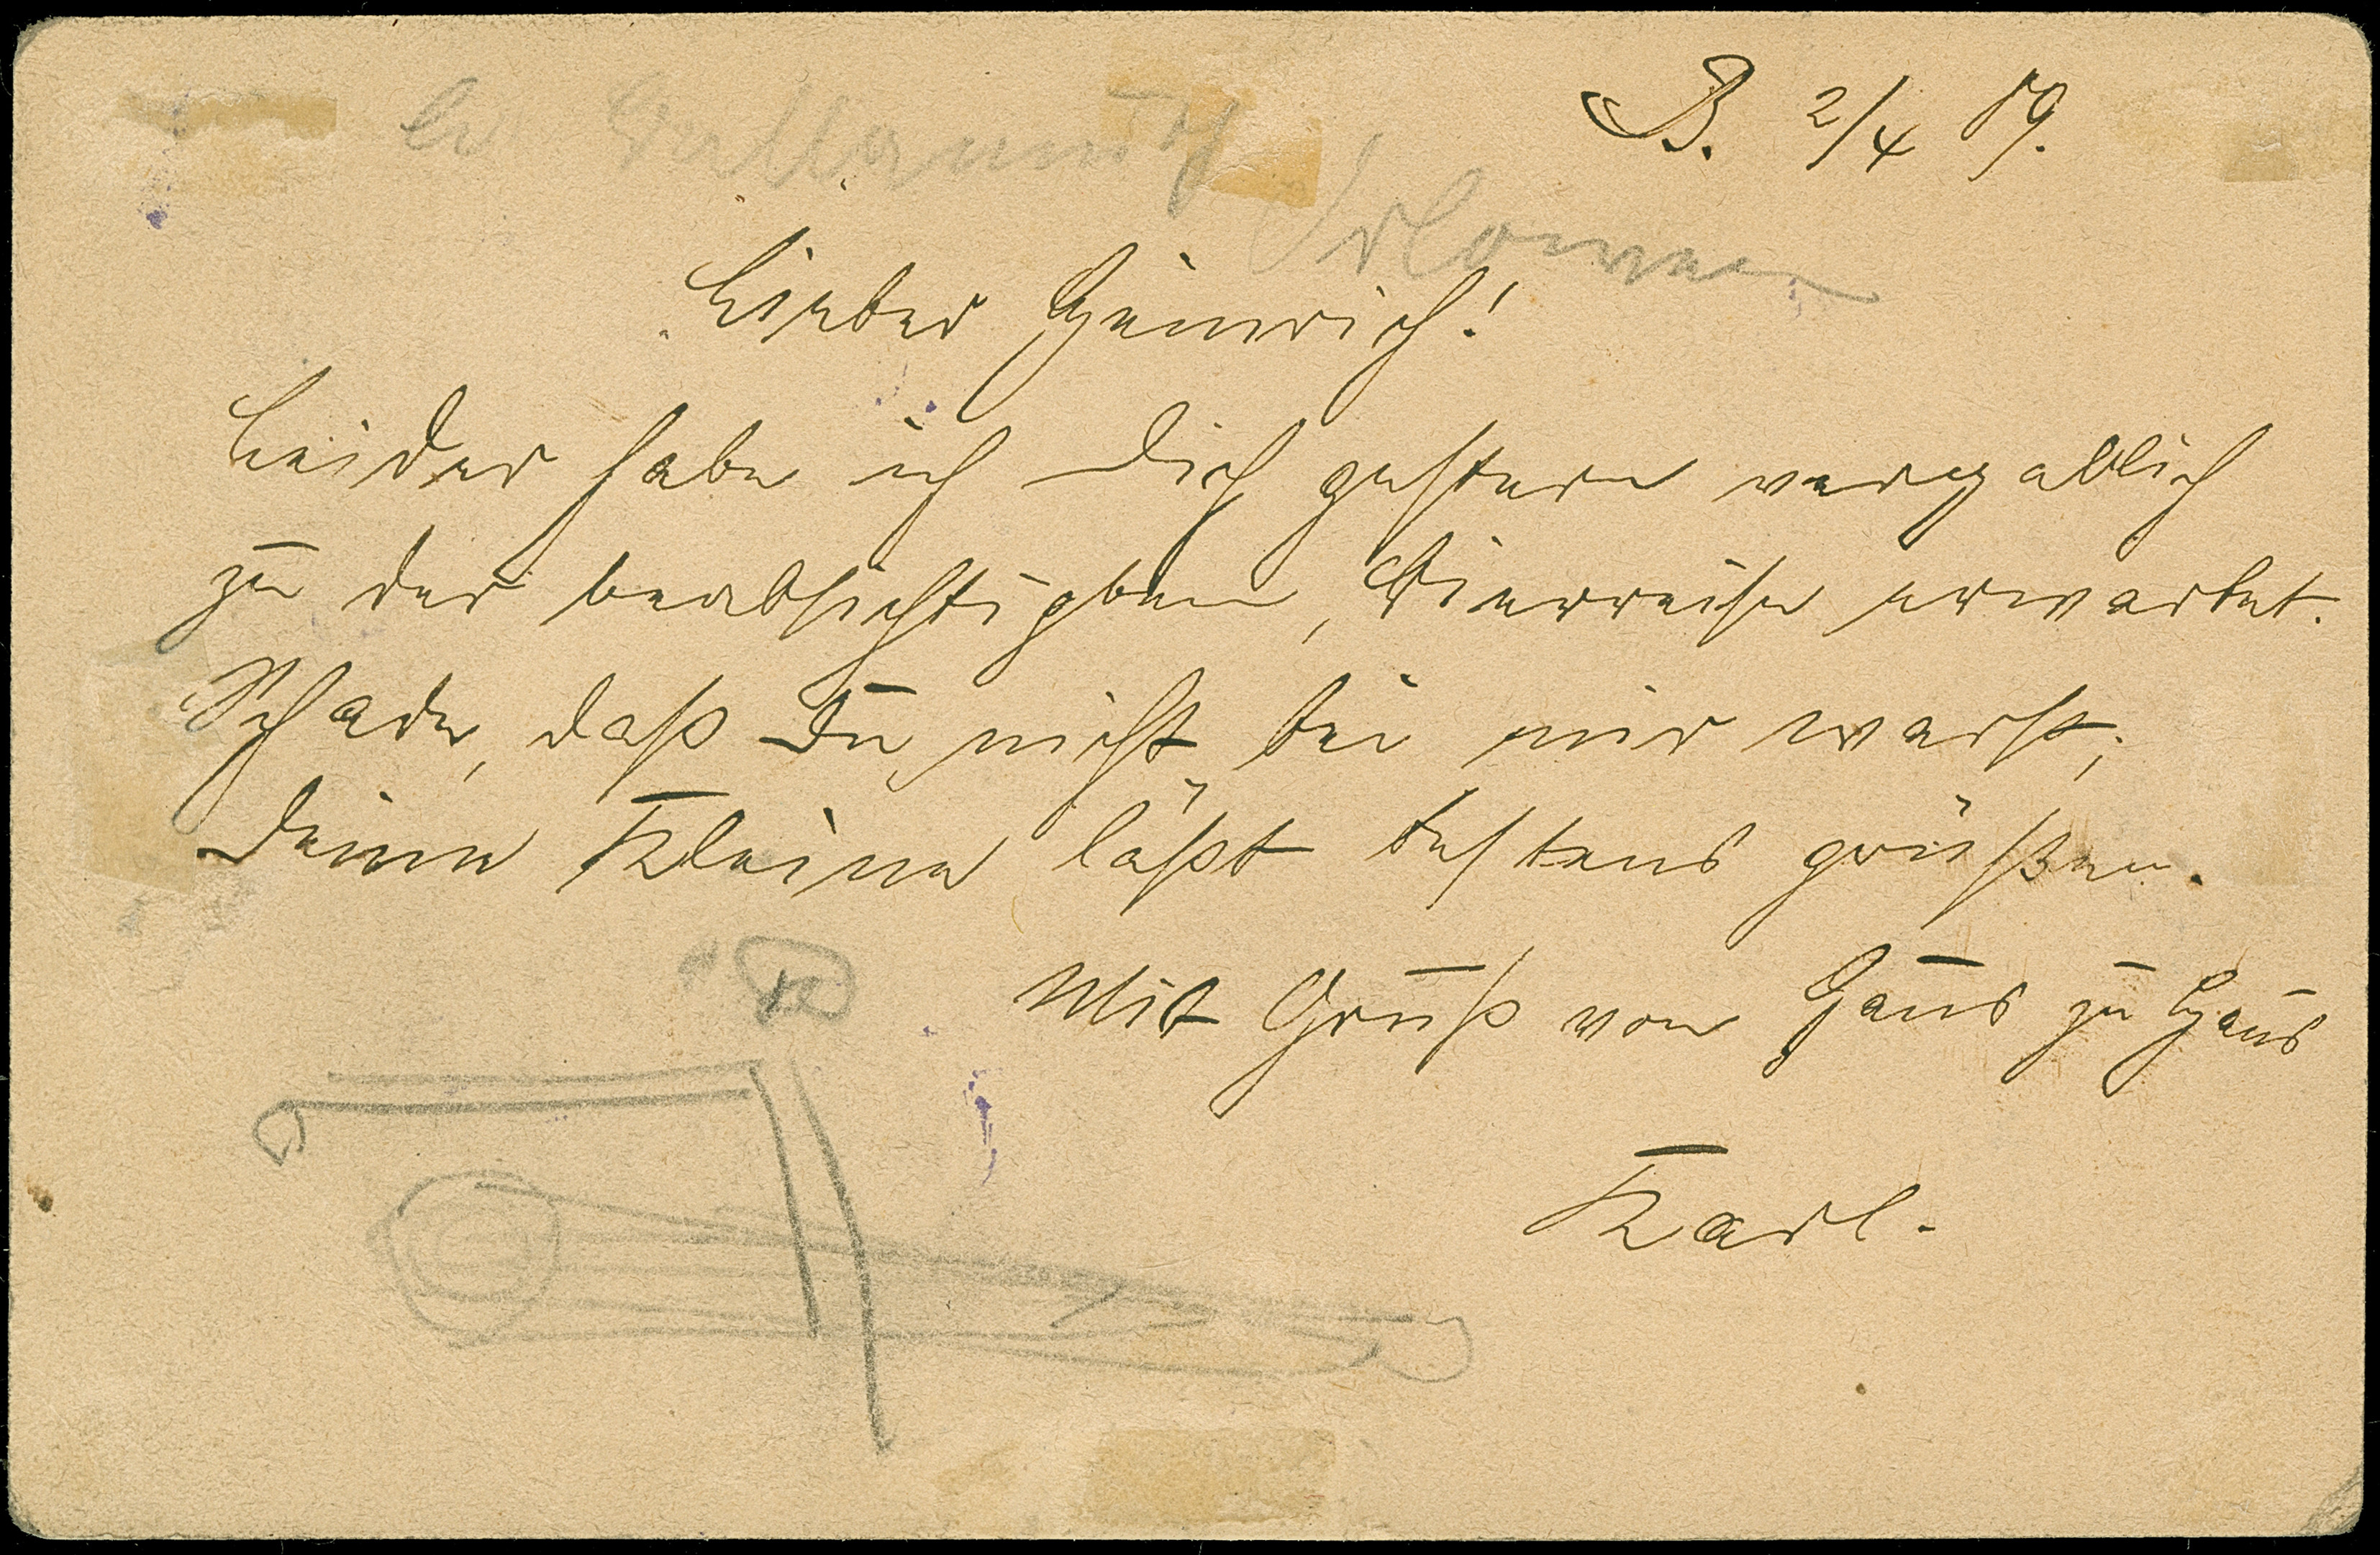 B. 2/4 89.
Lieber Heinrich!
Leider habe ich Dich gestern vergeblich
zu der beabsichtigten, Bierreise erwartet.
Schade, daß Du nicht bei mir warst;
Deine Kleine läßt bestens grüßen.
Mit Gruß von Haus zu Haus
Karl.